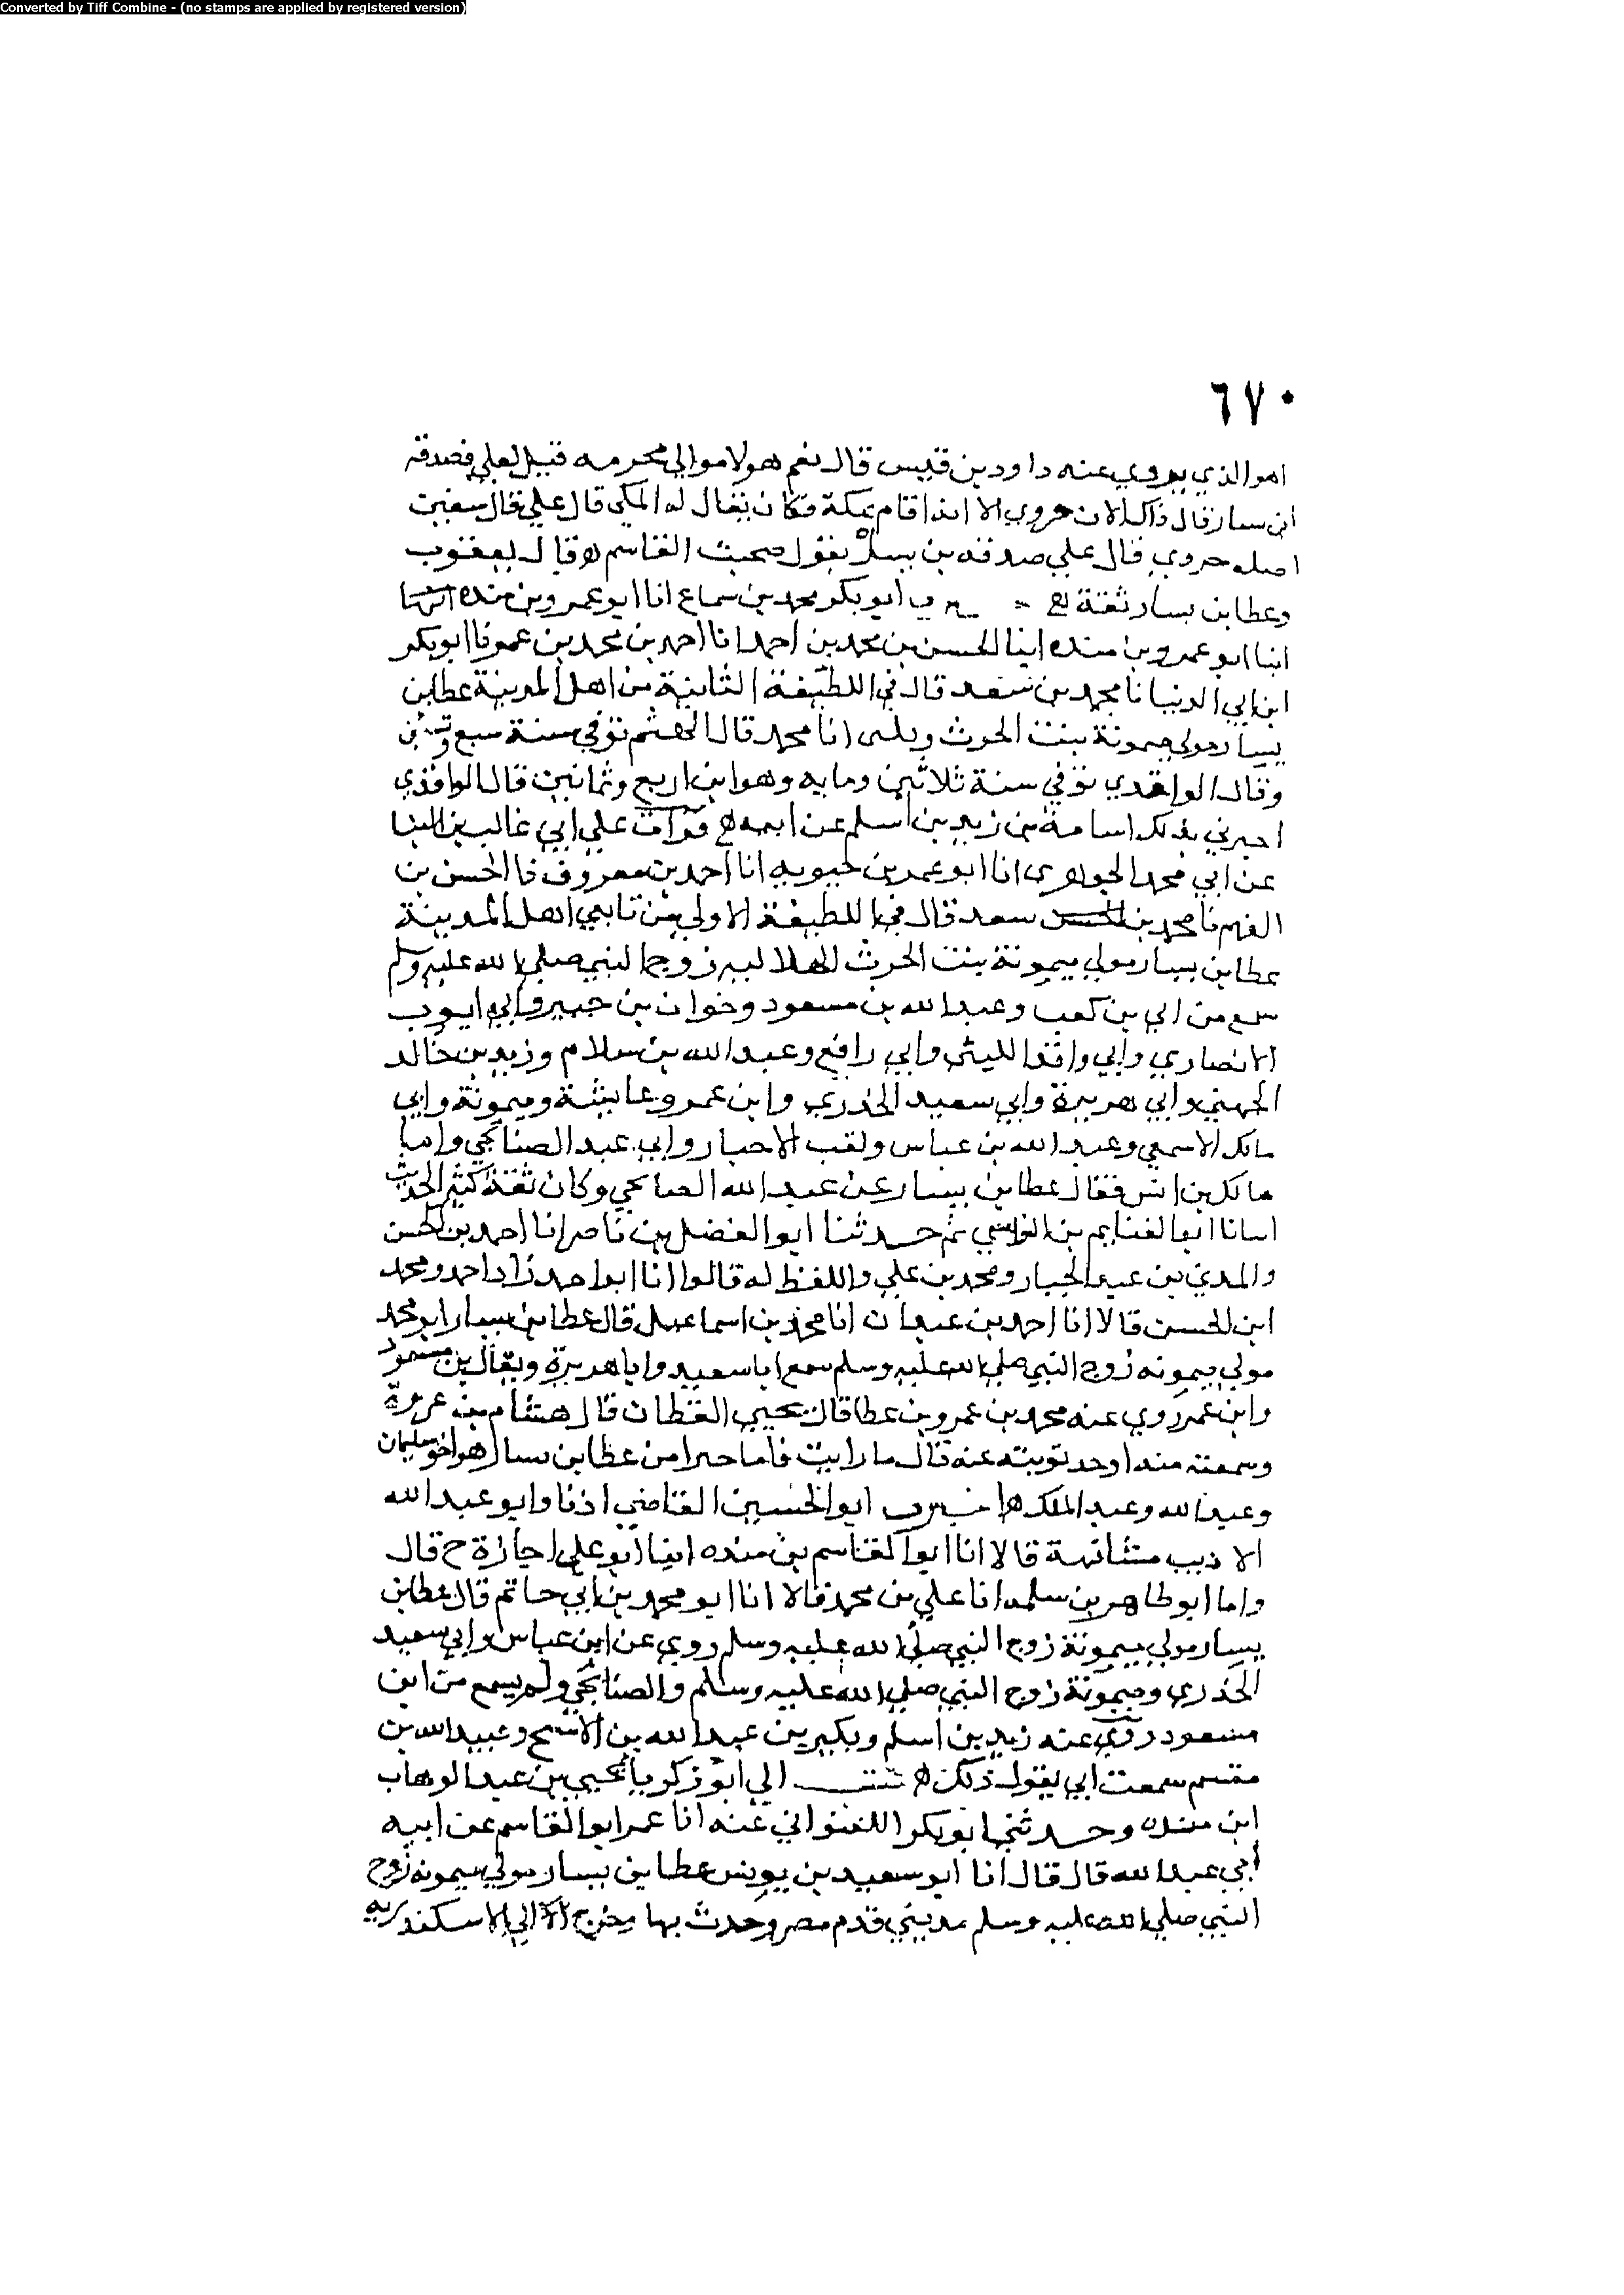 Converted by Tiff Combine - (no stamps are applied by registered version)
٦٧٠
اهو الذي يروي عنه داود بن قيس قال نعم هولا موالي محرمه قيل لعلي فصدقه
ابن يسار قال ذاك الان خروي الا انه اقام بمكة فكان يقال له المكي قال علي قال سفين
اصله خروي قال علي صدقه بن يسار يقول صحبت القاسم ه قال يعقوب
وعطا بن يسار ثقة ه ابو بكر محمد بن شجاع انا ابو عمرو بن منده
انبا ابو عمرو بن منده انبا الحسن بن محمد بن احمد انا احمد بن محمد بن عمر نا ابو بكر
ابن ابي الدنيا نا محمد بن سعد قال في الطبقة الثانية من اهل المدينة عطا بن
يسار مولى ميمونة بنت الحرث انا محمد قال الهيثم توفي سنة سبع وتسعين
وقال الواقدي توفي سنة ثلاثين ومايه وهو ابن اربع وثمانين قال الواقدي
اخبرني بذلك اسامة بن زيد بن اسلم عن ابيه ه قرات علي ابي غالب بن البنا
عن ابي محمد الجوهري انا ابو عمر بن حيويه انا احمد بن معروف نا الحسن بن
الفهم نا محمد بن سعد قال في الطبقة الاولي من تابعي اهل المدينة
عطا بن يسار مولي ميمونة بنت الحرث الهلاليه زوج النبي صلي الله عليه وسلم
سمع من ابي بن كعب وعبد الله بن مسعود وخوات بن جبير وابي ايوب
الانصاري وابي واقد الليثي وابي رافع وعبد الله بن سلام وزيد بن خالد
الجهني وابي هريرة وابي سعيد الخدري وابن عمر وعايشة وميمونة وابي
مالك الاسمعي وعبد الله بن عباس ولقب الاحبار وابي عبد الله الصنابحي واما
مالك بن انس فقال عطا بن يسار عن عبد الله الصنابحي وكان ثقة كثير الحديث
انبانا ابو الغنايم بن النرسي ثم حدثنا ابو الفضل بن ناصر انا احمد بن الحسن
والمبارك بن عبد الجبار ومحمد بن علي واللفظ له قالوا انا ابو احمد زاد احمد ومحمد
ابن الحسن قالا انا احمد بن عبدان انا محمد بن اسماعيل قال عطا بن يسار ابو محمد
مولي ميمونه زوج النبي صلي الله عليه وسلم سمع ابا سعيد وابا هريرة ويقال بن مسعود
وابن عمر روي عنه محمد بن عمرو بن عطا قال يحيي القطان قال هشام بن عروة
وسمعته منه او حدثوبيه عنه قال ما رايت قاصا خيرا من عطا بن يسار هو اخو سليمان
وعبد الله وعبد الملك ه اخبرنا ابو الحسين القاضي اذنا وابو عبد الله
الاديب مشافهة قالا انا ابو القاسم بن منده انبا ابو علي اجازة ح قال
واما ابو طاهر بن سلمه انا علي بن محمد قالا انا ابو محمد بن ابي حاتم قال عطا بن
يسار مولي ميمونة زوج النبي صلي الله عليه وسلم روي عن ابن عباس وابي سعيد
الخدري وميمونة زوج النبي صلي الله عليه وسلم والصنابحي ولم يسمع من ابن
مسعود روي عنه زيد بن اسلم وبكير بن عبد الله بن الاشج وعبيد الله بن
مقسم سمعت ابي يقول ذلك ه كتب الي ابو زكريا يحيي بن عبد الوهاب
ابن منده وحدثنيها ابو بكر اللفتواني عنه انا عمر ابو القاسم عن ابيه
ابي عبد الله قال قال انا ابو سعيد بن يونس عطا بن يسار مولي ميمونه زوج
النبي صلي الله عليه وسلم مديني قدم مصر وحدث بها الي الاسكندريه